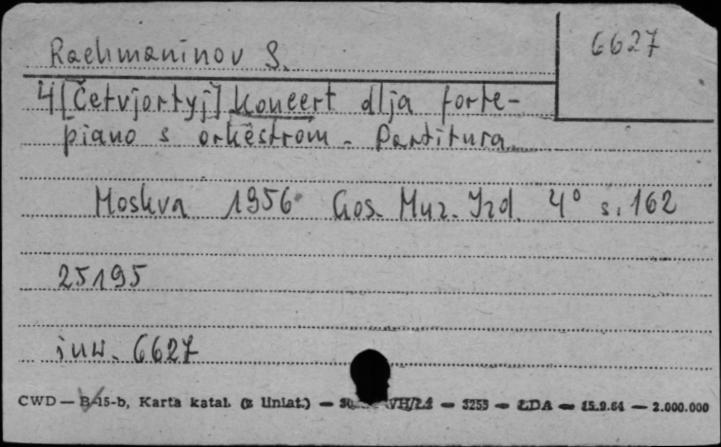 6627
Rachmaninov S.
4 [Četvjortyj] koncert dlja forte-
piano s orkestrom. Partitura
Moskva 1956 Gos. Muz. Izd. 4° s. 162
25195
inw. 6627
CWD — B-15-b, Karta katal. (z liniat.) — VH/Ł1 — 3253 — ŁDA — 15.9.64 — 2.000.000